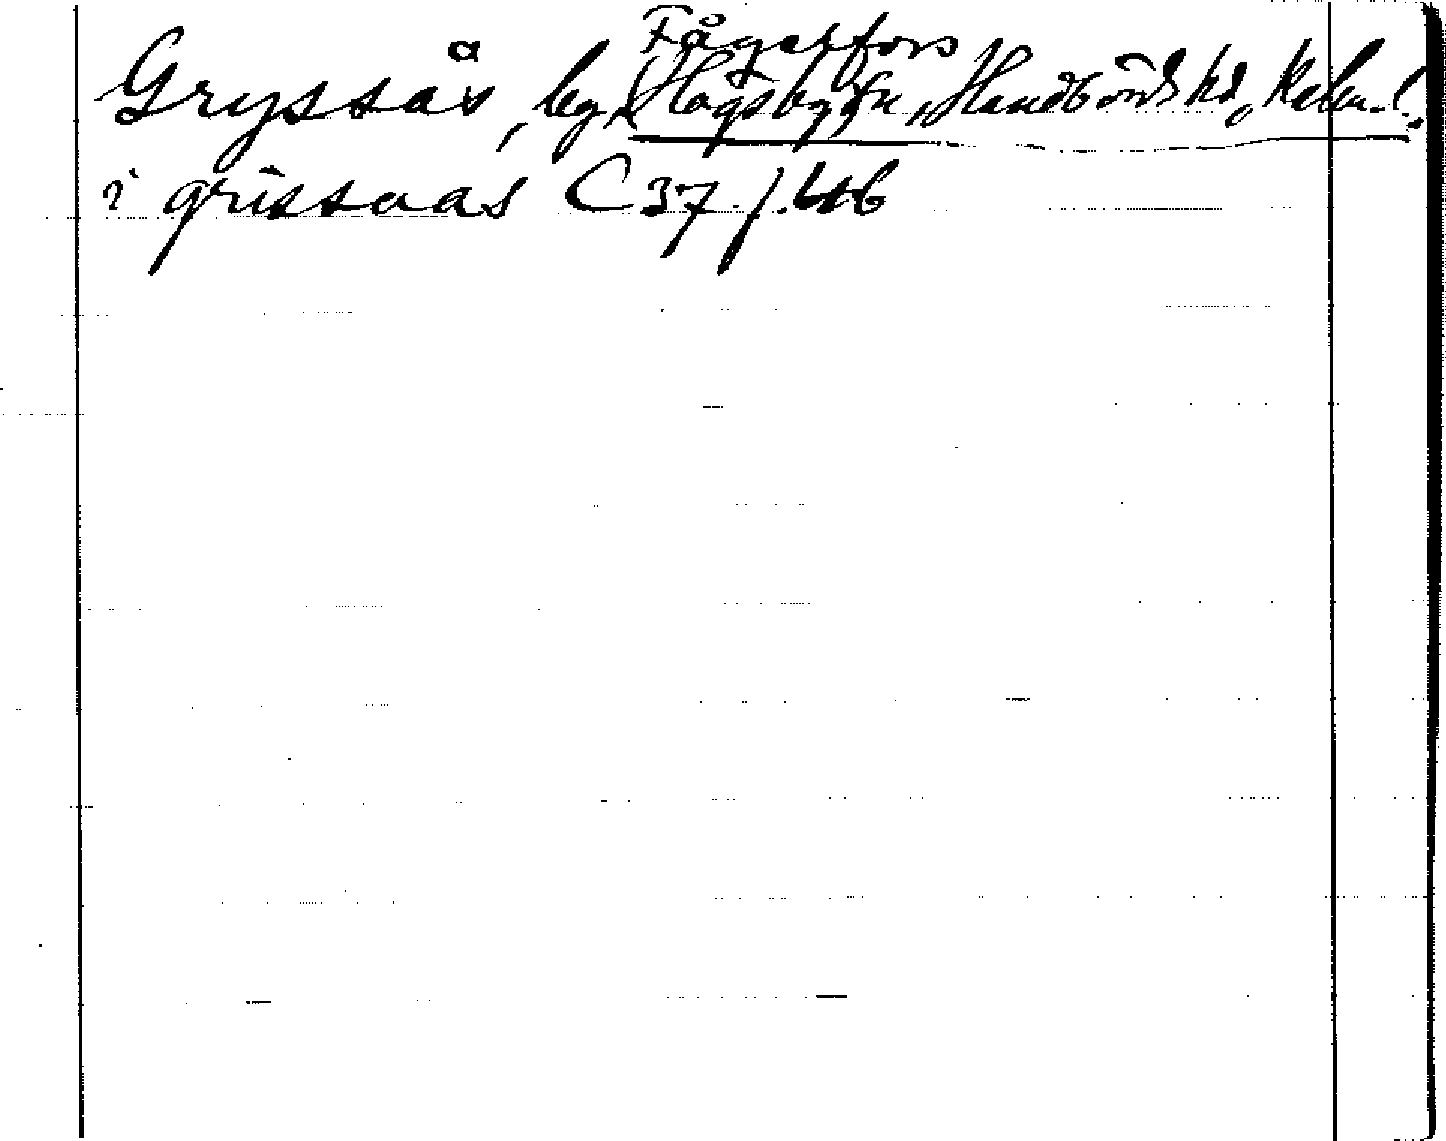 Fågelfors
Gryssås, by, (Högsby sn, Handbörds hd, Kalm. l.
i grissaas C 37 f. 46